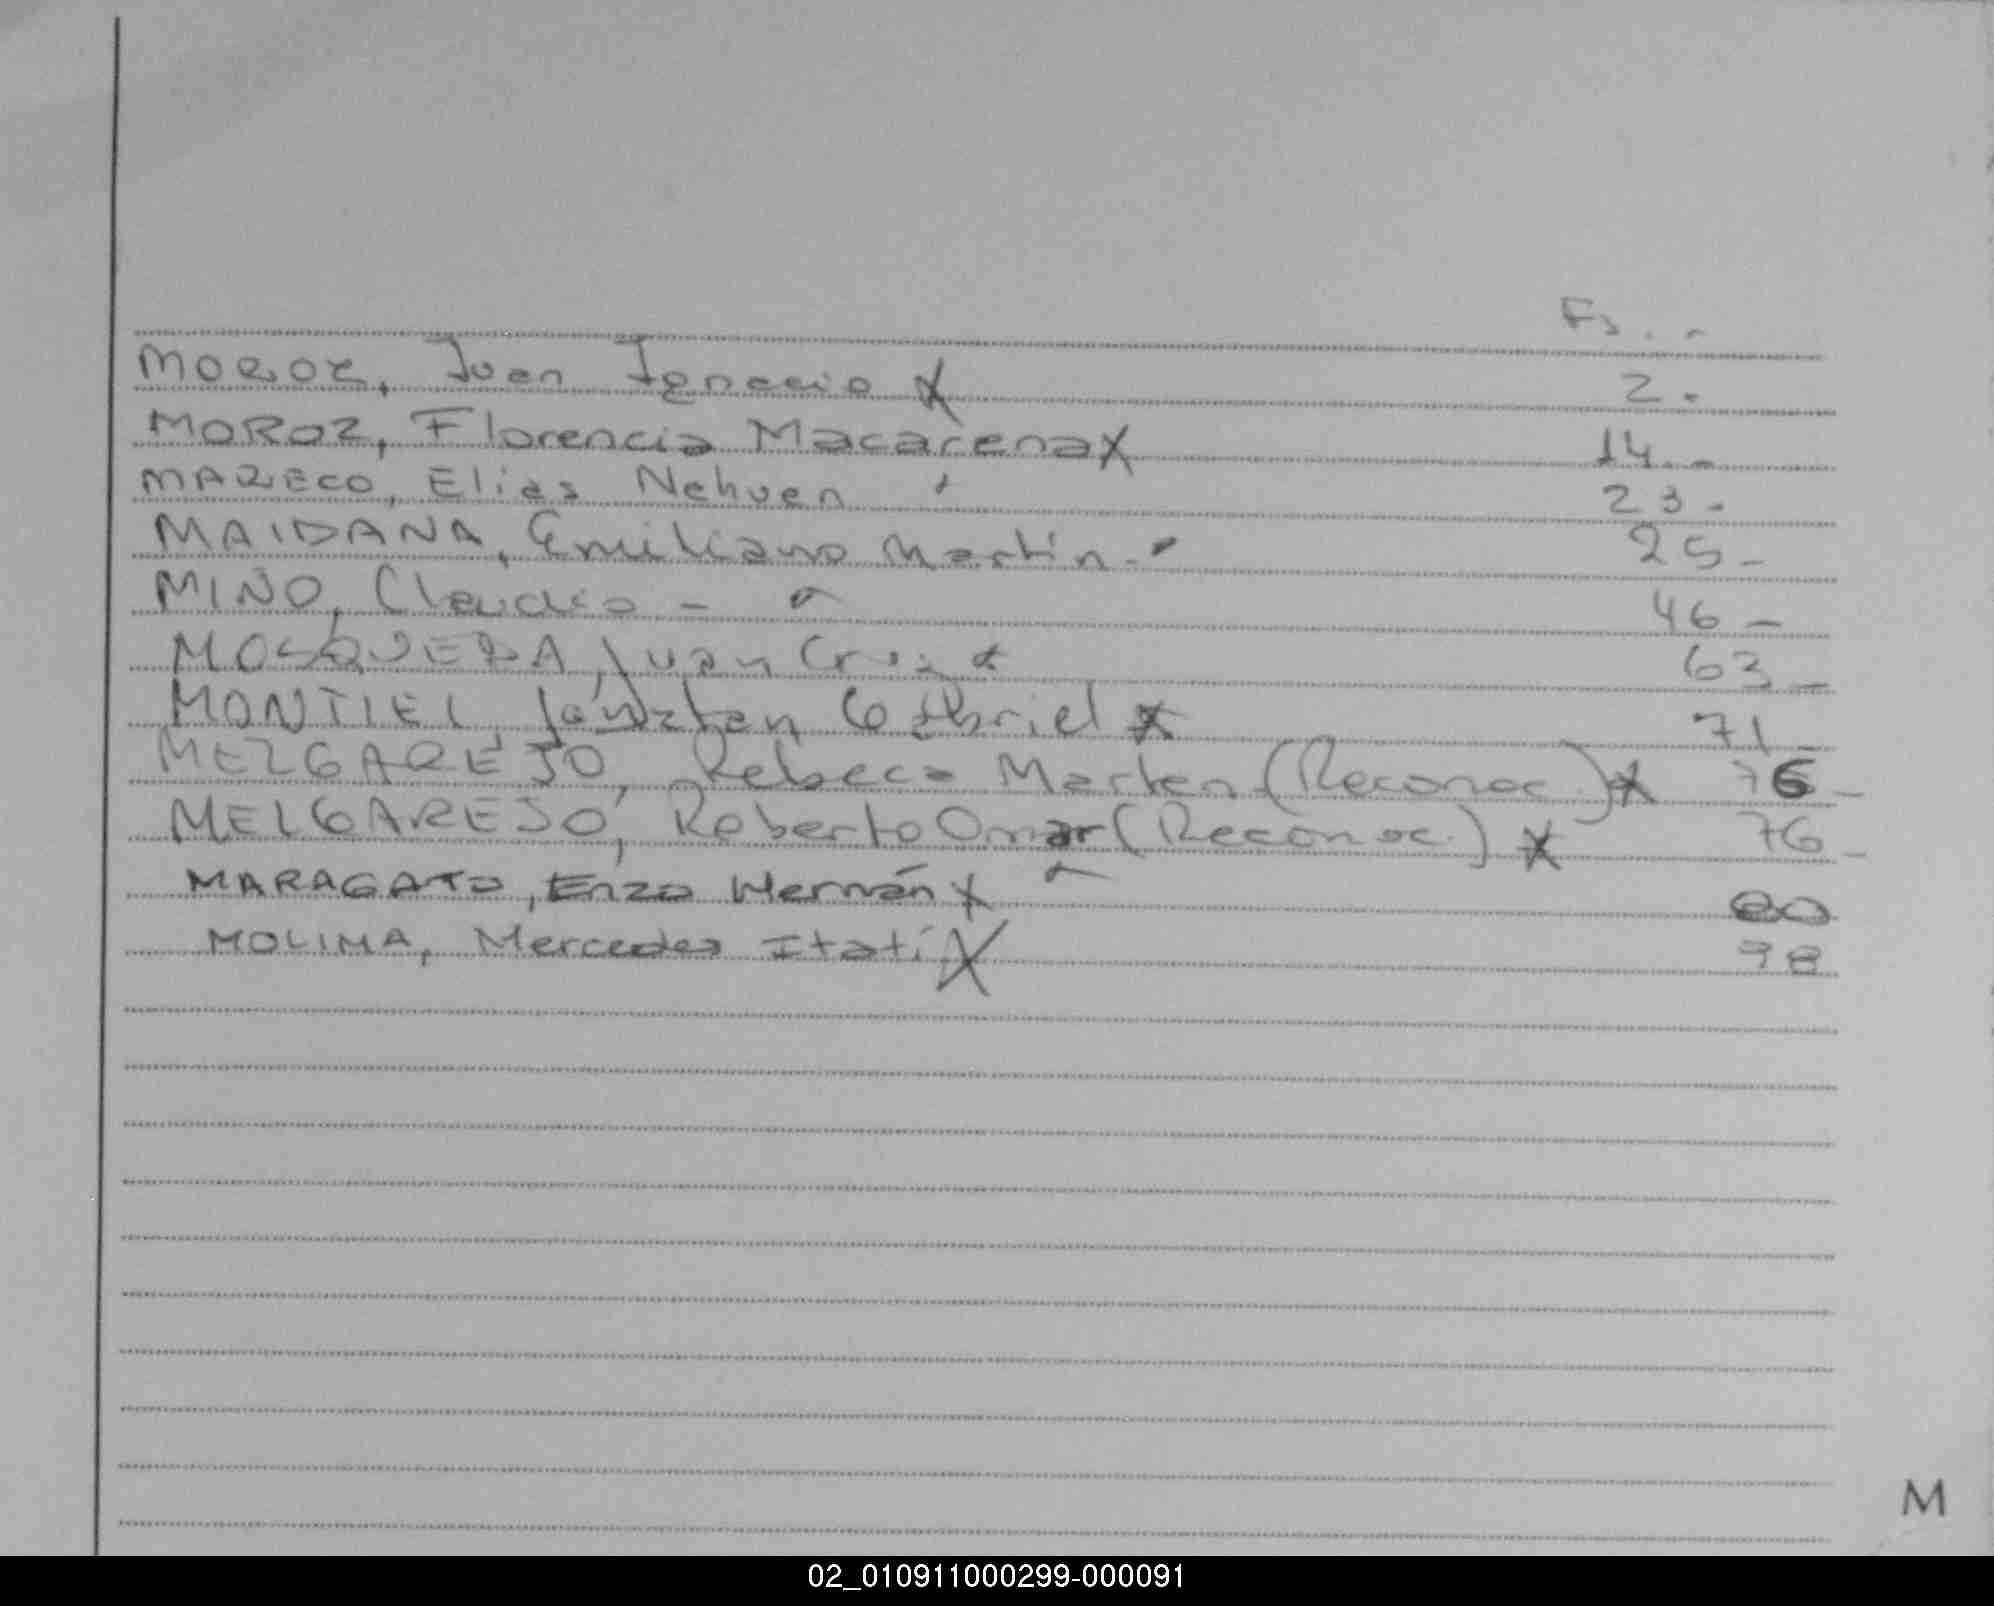 Fs. -
MOROZ, Juan Ignacio X 2.
MOROZ, Florencia Macarena X 14.-
MARECO, Elias Nehuen 23.-
MAIDANA, Emiliano Martín.- 25-
MIÑO, Claudio - 46-
MOSQUEDA, Juan Cruz 63-
MONTIEL Gabriel X 71-
MELGAREJO, Rebeca (Reconoc.) X 76-
MELGAREJO, Roberto Omar (Reconoc.) X 76-
MARAGATO, Enzo Hernán X
MOLINA, Mercedes Itatí X 98
M
02_010911000299-000091